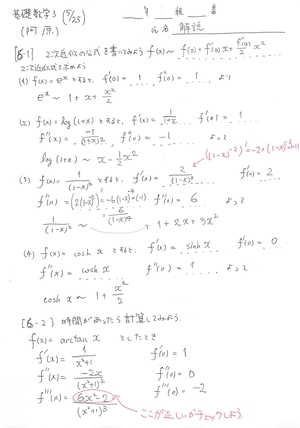 基礎数学3 (5/25) 年 組 番
(阿原) 氏名 解説
[6-1] 2次近似の公式を書いてみよう f(x)~ f(0)+f'(0)x+f''(0)/2 x²
2次近似式を求めよう.
(1) f(x)=eˣ とすると, f'(0)= 1 , f''(0)= 1 , よって
eˣ ~ 1+x+x²/2
(2) f(x)=log(1+x) とすると, f'(x)= 1/(1+x) f'(0)= 1
f''(x)= -1/(1+x)² , f''(0)= -1 よって
log(1+x) ~ x-1/2 x²
((1-x)⁻²)'=-2・(1-x)⁻³・(-1)
(3) f(x)= 1/(1-x)² とすると, f'(x)= 2/(1-x)³ f'(0)= 2
f''(x)= (2(1-x)⁻³)'=-6(1-x)⁻⁴・(-1) f''(0)= 6 よって
6/(1-x)⁴
1/(1-x)² ~ 1+2x+3x²
(4) f(x)= cosh x とすると, f'(x)= sinh x f'(0)= 0
f''(x)= cosh x f''(0)= 1 よって
cosh x ~ 1+x²/2
[6-2] 時間があったら計算してみよう.
f(x)= arctan x としたとき
f'(x)= 1/(x²+1) f'(0)= 1
f''(x)= -2x/(x²+1)² f''(0)= 0
f'''(x)= 6x²-2/(x²+1)³ f'''(0)= -2
ここが正しいかチェックしよう